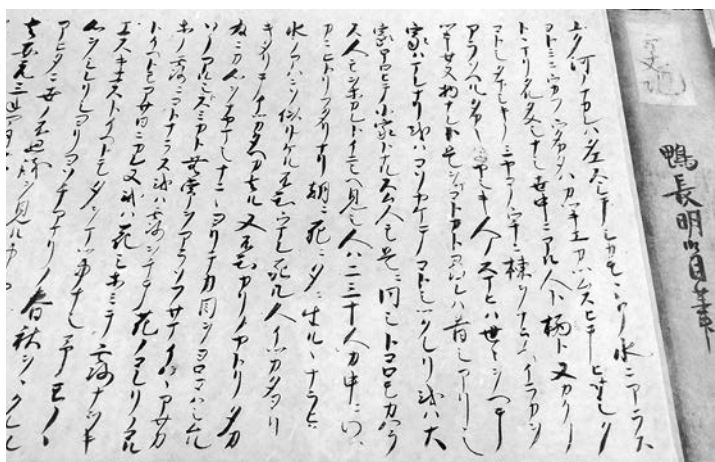 鴨長明自筆
ユク河ノナカレハタエスシテシカモモトノ水ニアラス
ヨトミニウカフウタカタハカツキエカツムスヒテヒサシク
トヽマリタルタメシナシ世中ニアル人ト栖ト又カクノ
コトシタマシキノミヤコノウチニ棟ヲナラヘイラカヲ
アラソヘルタカキイヤシキ人ノスマヒハ世々ヲヘテ
ツキセヌ物ナレト是ヲマコトカト尋レハ昔シアリシ
家ハマレナリ或ハコソヤケテコトシツクレリ或ハ大
家ホロヒテ小家トナルスム人モ是ニ同シトコロモカハラ
ス人モヲホカレトイニシヘ見シ人ハ二三十人カ中ニワツ
カニヒトリフタリナリ朝ニ死ニ夕ニ生ルヽナラヒ
水ノアハニソ似リケル不知ウマレ死ル人イツカタヨリ
キタリテイツカタヘカ去ル又不知カリノヤトリタカ
為ニカ心ヲナヤマシナニヽヨリテカ目ヲヨロコハシムル
ソノアルシトスミカト無常ヲアラソフサマイハヽアサカ
ホノ露ニコトナラス或ハ露ヲチテ花ノコレリノコル
トイヘトモアサ日ニカレヌ或ハ花シホミテ露ナヲキ
エスキエストイヘトモ夕ヲマツ事ナシ予モノヽ
心ヲシレリシヨリヨソチアマリノ春秋ヲヽクレル
アヒタニ世ノ不思議ヲ見ル事
去安元三年